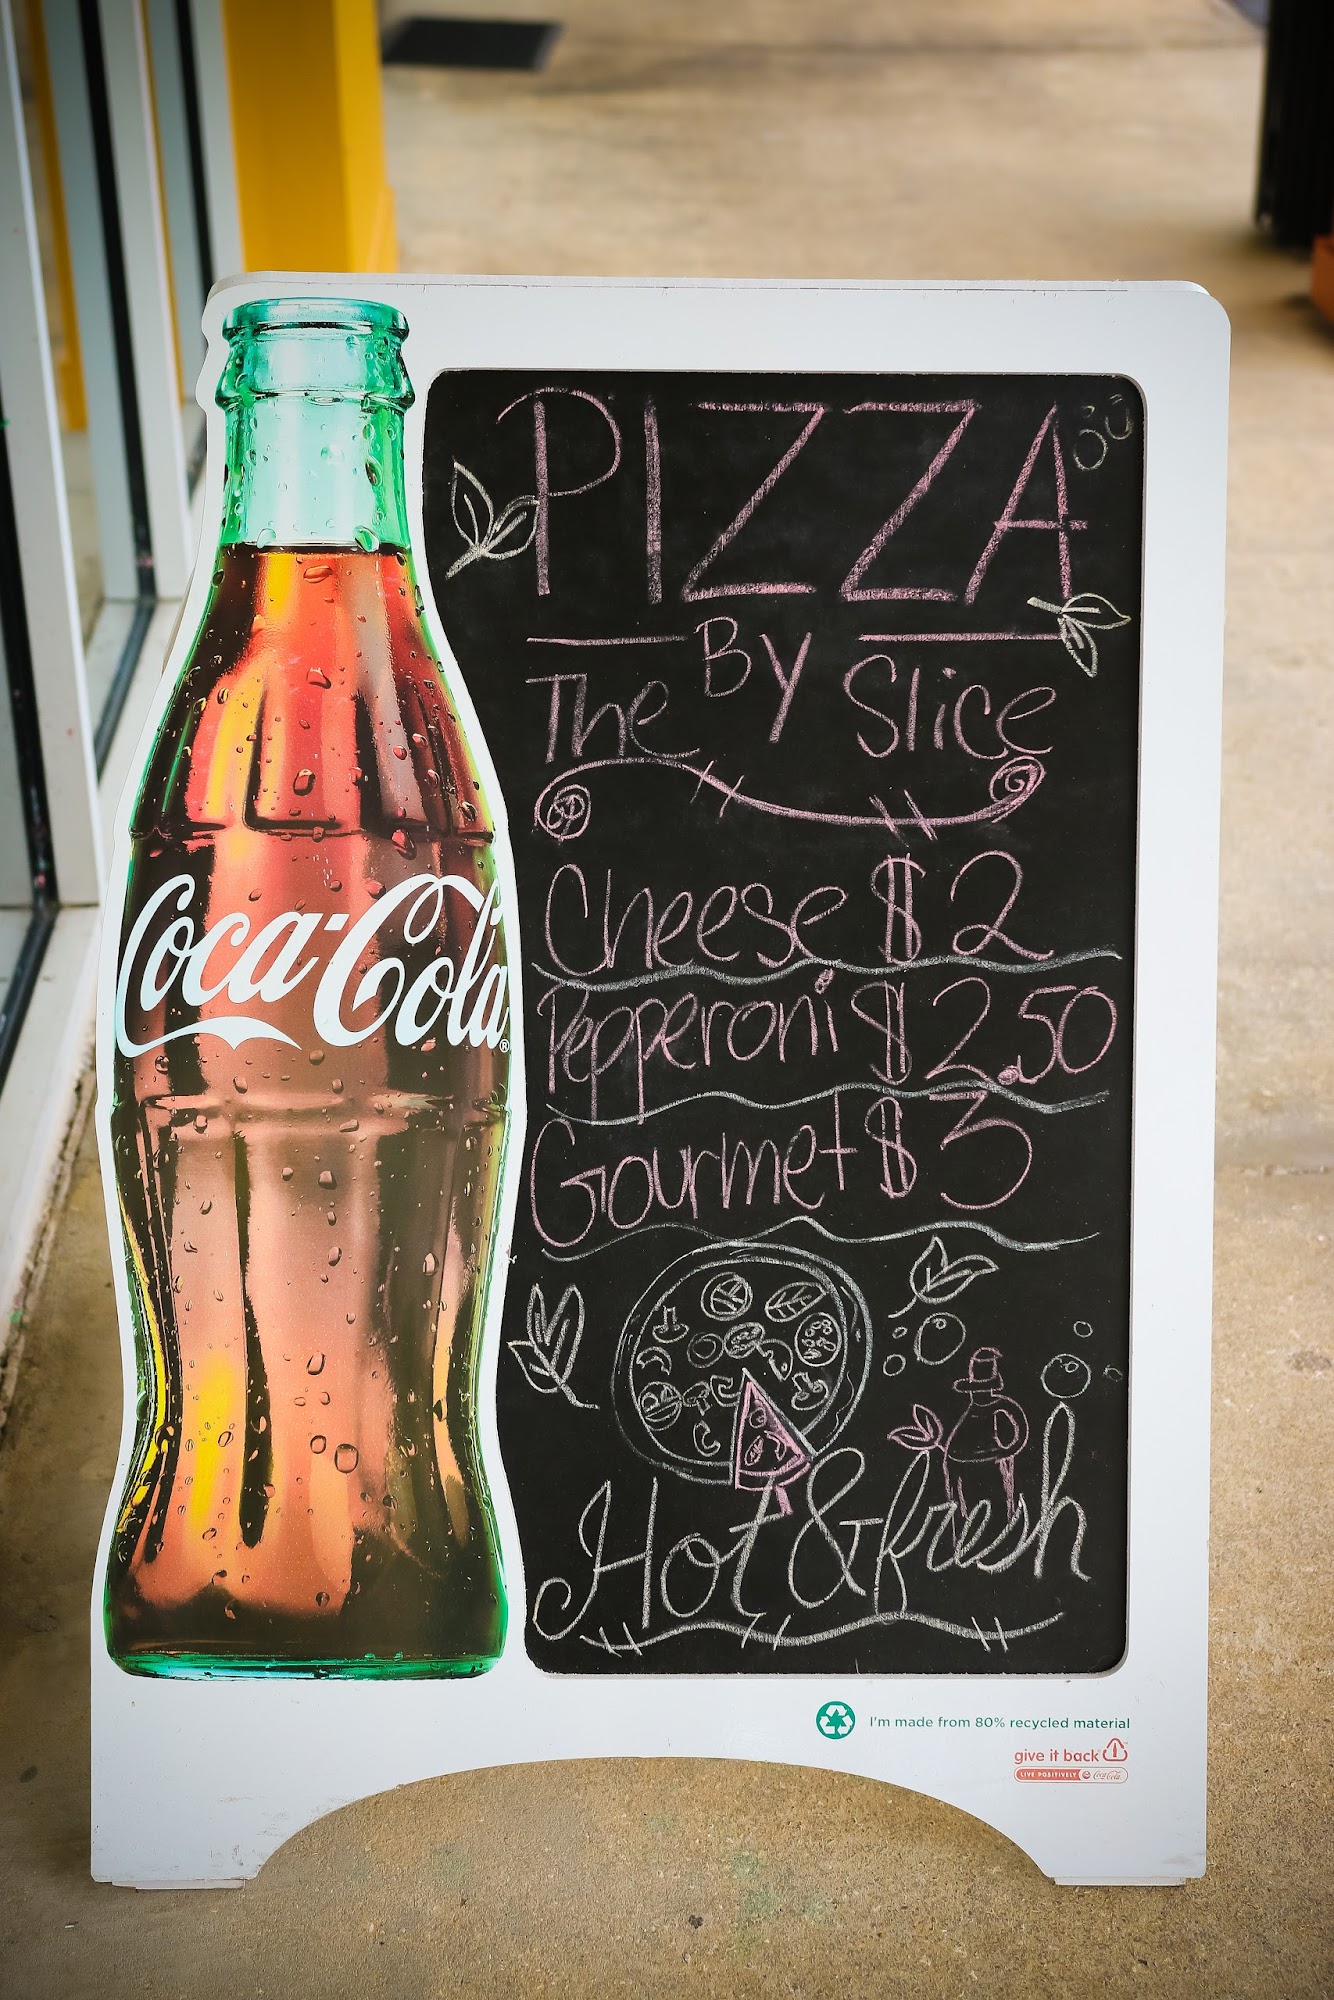 PIZZA
By
The Slice
Cheese $2
Pepperoni $2.50
Gourmet $3
Hot & fresh
Coca-Cola®
I'm made from 80% recycled material
give it back
LIVE POSITIVELY Coca-Cola